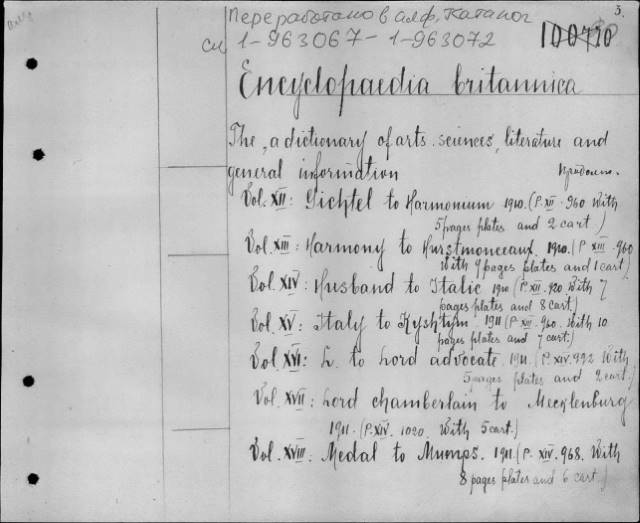 Переработано в алф. каталог
см 1-963067 - 1-963072
3.
Encyclopaedia britannica
The, a dictionary of arts. sciences, literature and
general information
Vol. XII: Gichtel to Harmonium 1910. (P. XII. 960 With
5 pages plates and 2 cart.)
Vol. XIII: Harmony to Hurstmonceaux 1910. (P XIII. 960
With 9 pages plates and 1 cart.)
Vol. XIV: Husband to Italic 1910 (P. XII. 920 With 7
pages plates and 8 cart.)
Vol. XV: Italy to Kyshtym. 1911 (P. XII. 960. With 10
pages plates and 7 cart.)
Vol. XVI: L. to Lord advocate. 1911. (P. XIV. 992 With
5 pages plates and 2 cart.)
Vol. XVII: Lord chamberlain to Mecklenburg
1911. (P. XIV. 1020. With 5 cart.)
Vol. XVIII. Medal to Mumps. 1911. (P. XIV. 968. With
8 pages plates and 6 cart.)